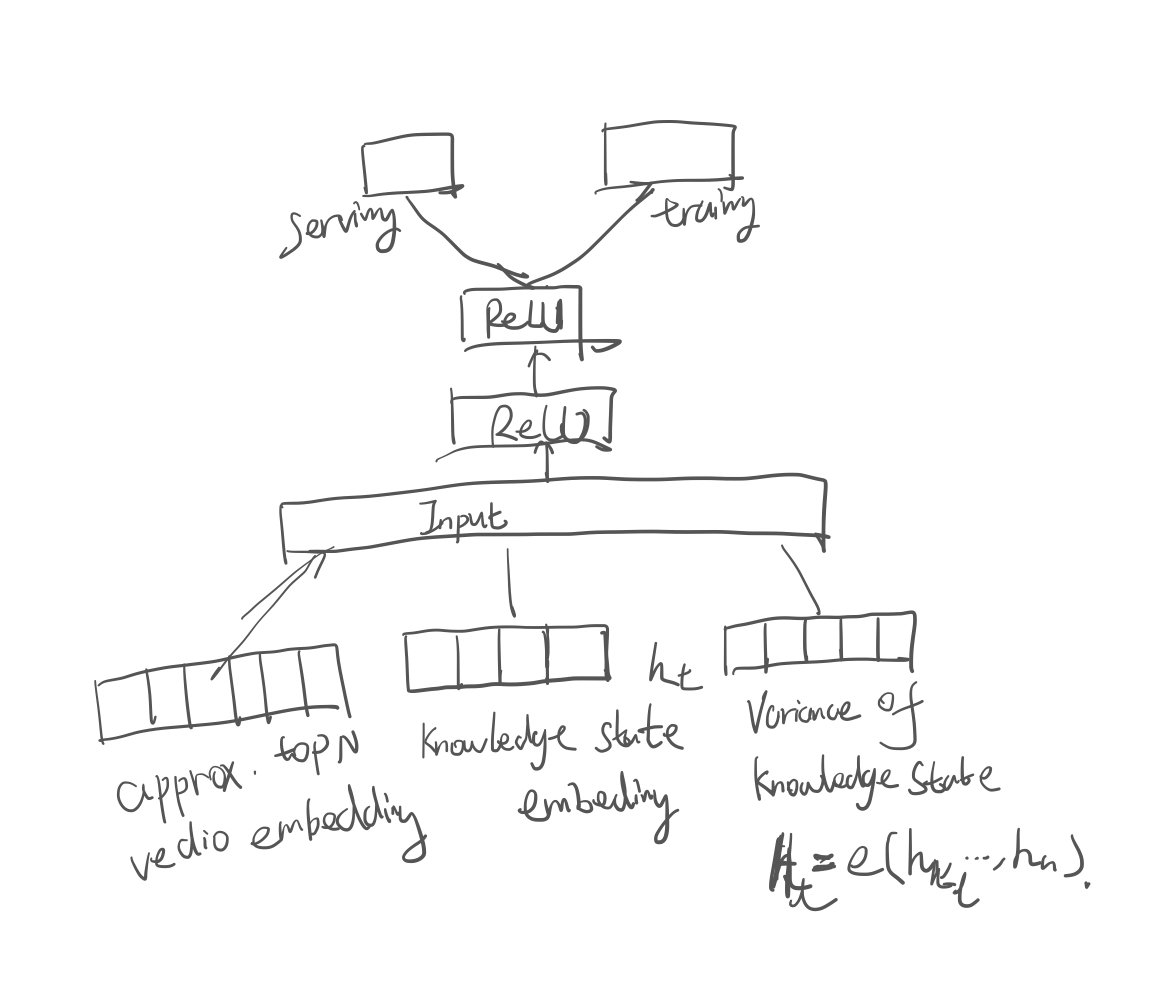 serving
training
ReLU
ReLU
Input
approx. topN
vedio embedding
Knowledge state
embeding
h_t
Variance of
Knowledge State
H_t = e(h, ..., h_n).